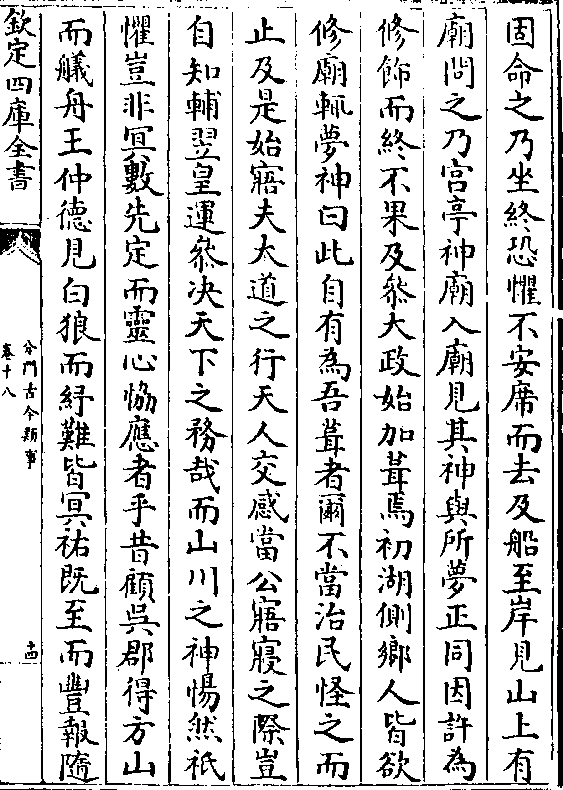 固命之乃坐終恐懼不安席而去及船至岸見山上有
廟問之乃宫亭神廟入廟見其神與所夢正同因許為
修飾而終不果及叅大政始加葺焉初湖側鄉人皆欲
修廟輒夢神曰此自有為吾葺者爾不當治民怪之而
止及是始寤夫大道之行天人交感當公寤寢之際豈
自知輔翌皇運叅决天下之務哉而山川之神惕然祇
懼豈非冥數先定而靈心恊應者乎昔顧吳郡得方山
而艤舟王仲德見白狼而紓難皆冥祐既至而豐報隨
欽定四庫全書
分門古今類事
卷十八
十四